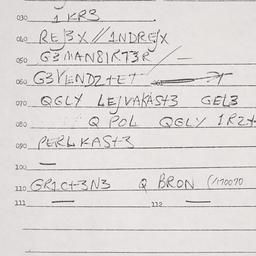 030 1 KR3
040 REJ3X // 1NDREJX
050 G3MAN81RT3R —
060 G3VENDZ+ET
070 QGLY LEJVAKAST3 GEL3
080 Q POL QGLY 1RZ+
090 PERLKAST3
100 —
110 GR1C+3N3 Q BRON (170070
111 — 112 —